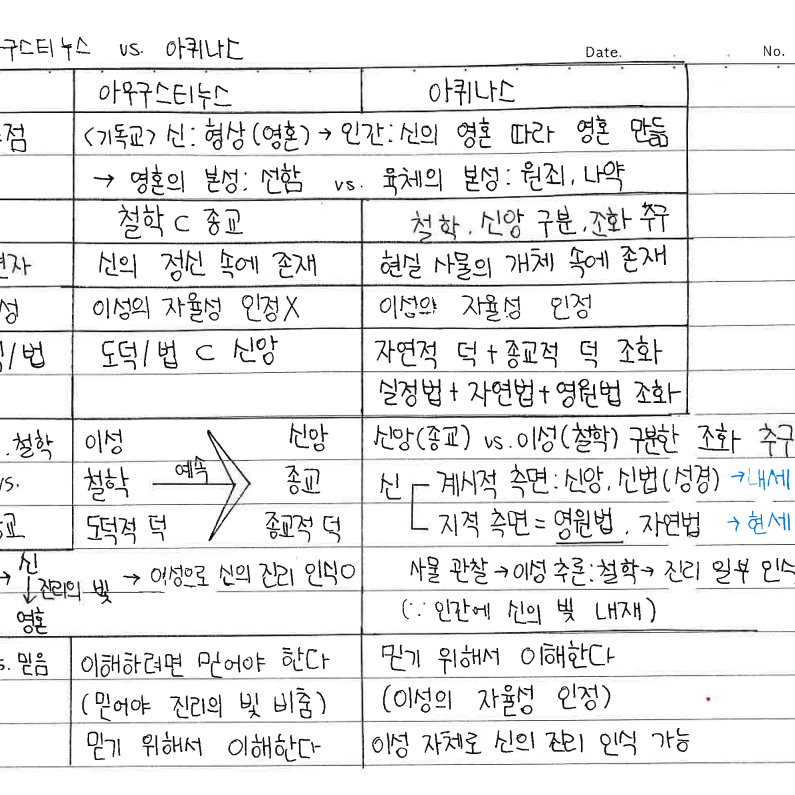 구스티누스 vs. 아퀴나스 Date. No.
아우구스티누스 아퀴나스
점 <기독교> 신: 형상(영혼) → 인간: 신의 영혼 따라 영혼 만듦
→ 영혼의 본성: 선함 vs. 육체의 본성: 원죄, 나약
철학 ⊂ 종교 철학, 신앙 구분, 조화 추구
자 신의 정신 속에 존재 현실 사물의 개체 속에 존재
성 이성의 자율성 인정X 이성의 자율성 인정
/법 도덕/법 ⊂ 신앙 자연적 덕+종교적 덕 조화
실정법+자연법+영원법 조화
.철학 이성 신앙 신앙(종교) vs. 이성(철학) 구분한 조화 추구
vs. 철학 예속 종교 신 계시적 측면: 신앙, 신법(성경) →내세
교 도덕적 덕 종교적 덕 지적 측면=영원법, 자연법 →현세
→ 신
↓진리의 빛 → 이성으로 신의 진리 인식O 사물 관찰→이성 추론:철학→ 진리 일부 인식
영혼 (∵ 인간에 신의 빛 내재)
s. 믿음 이해하려면 믿어야 한다 믿기 위해서 이해한다
(믿어야 진리의 빛 비춤) (이성의 자율성 인정)
믿기 위해서 이해한다 이성 자체로 신의 진리 인식 가능